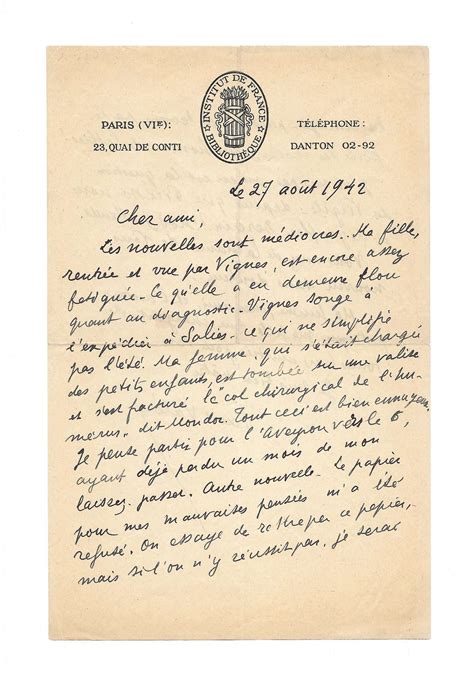 INSTITUT DE FRANCE
BIBLIOTHÈQUE
PARIS (VIᴱ):
23, QUAI DE CONTI
TÉLÉPHONE:
DANTON 02-92
Le 27 août 1942
Cher ami,
Les nouvelles sont médiocres. Ma fille,
rentrée et vue par Vignes, est encore assez
fatiguée. Ce qu'elle a en demeure flou
quant au diagnostic. Vignes songe à
l'expédier à Salies - ce qui ne simplifie
pas l'été. Ma femme, qui s'était chargée
des petits enfants, est tombée sur une valise
et s'est facturé le "col chirurgical de l'hu-
mérus" dit Mondor. Tout ceci est bien ennuyeux.
Je pense partir pour l'Aveyron vers le 6,
ayant déjà perdu un mois de mon
laissez-passer. Autre nouvelle. Le papier
pour mes mauvaises pensées m'a été
refusé. On essaye de rattraper ce papier,
mais si l'on n'y réussit pas, je serai